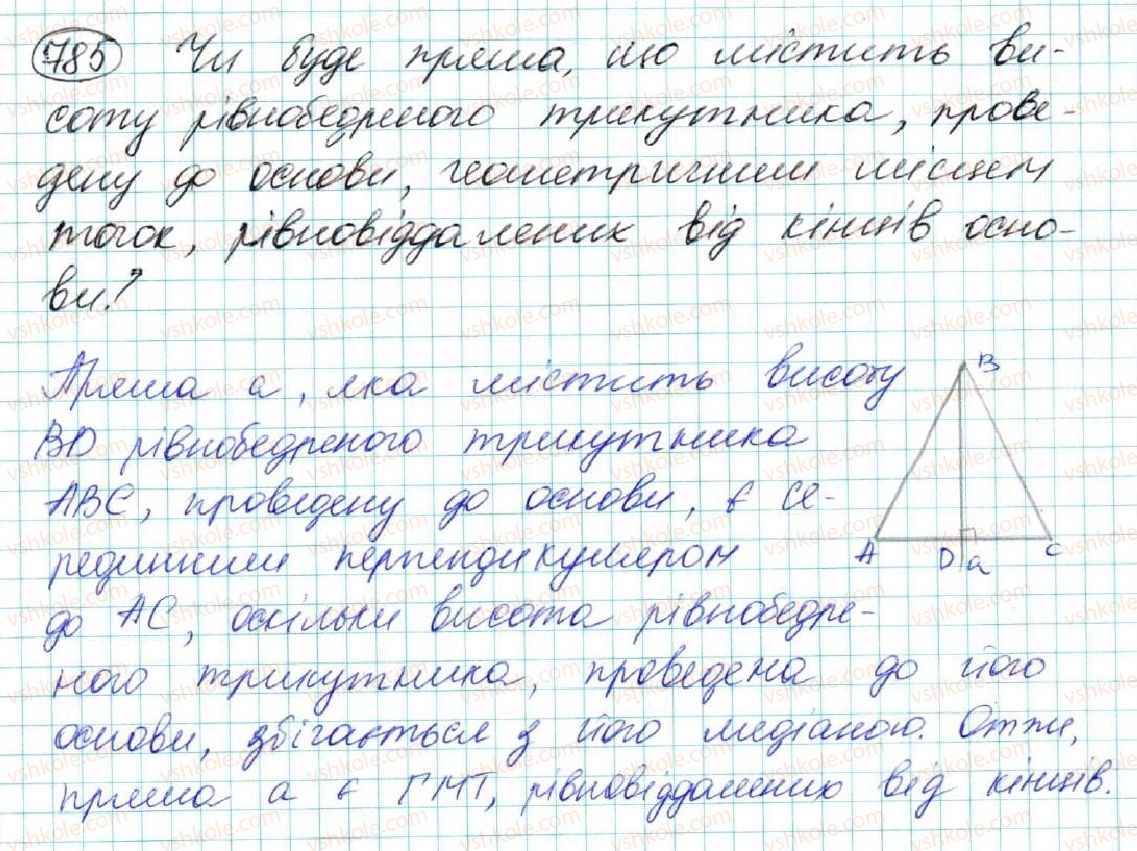 785 Чи буде пряма, що містить ви-
соту рівнобедреного трикутника, прове-
дену до основи, геометричним місцем
точок, рівновіддалених від кінців осно-
ви?
Пряма a, яка містить висоту
BD рівнобедреного трикутника
ABC, проведену до основи, є се-
рединним перпендикуляром
до AC, оскільки висота рівнобедре-
ного трикутника, проведена до його
основи, збігається з його медіаною. Отже,
пряма a є ГМТ, рівновіддалених від кінців.
B
A D a C
vshkole.com